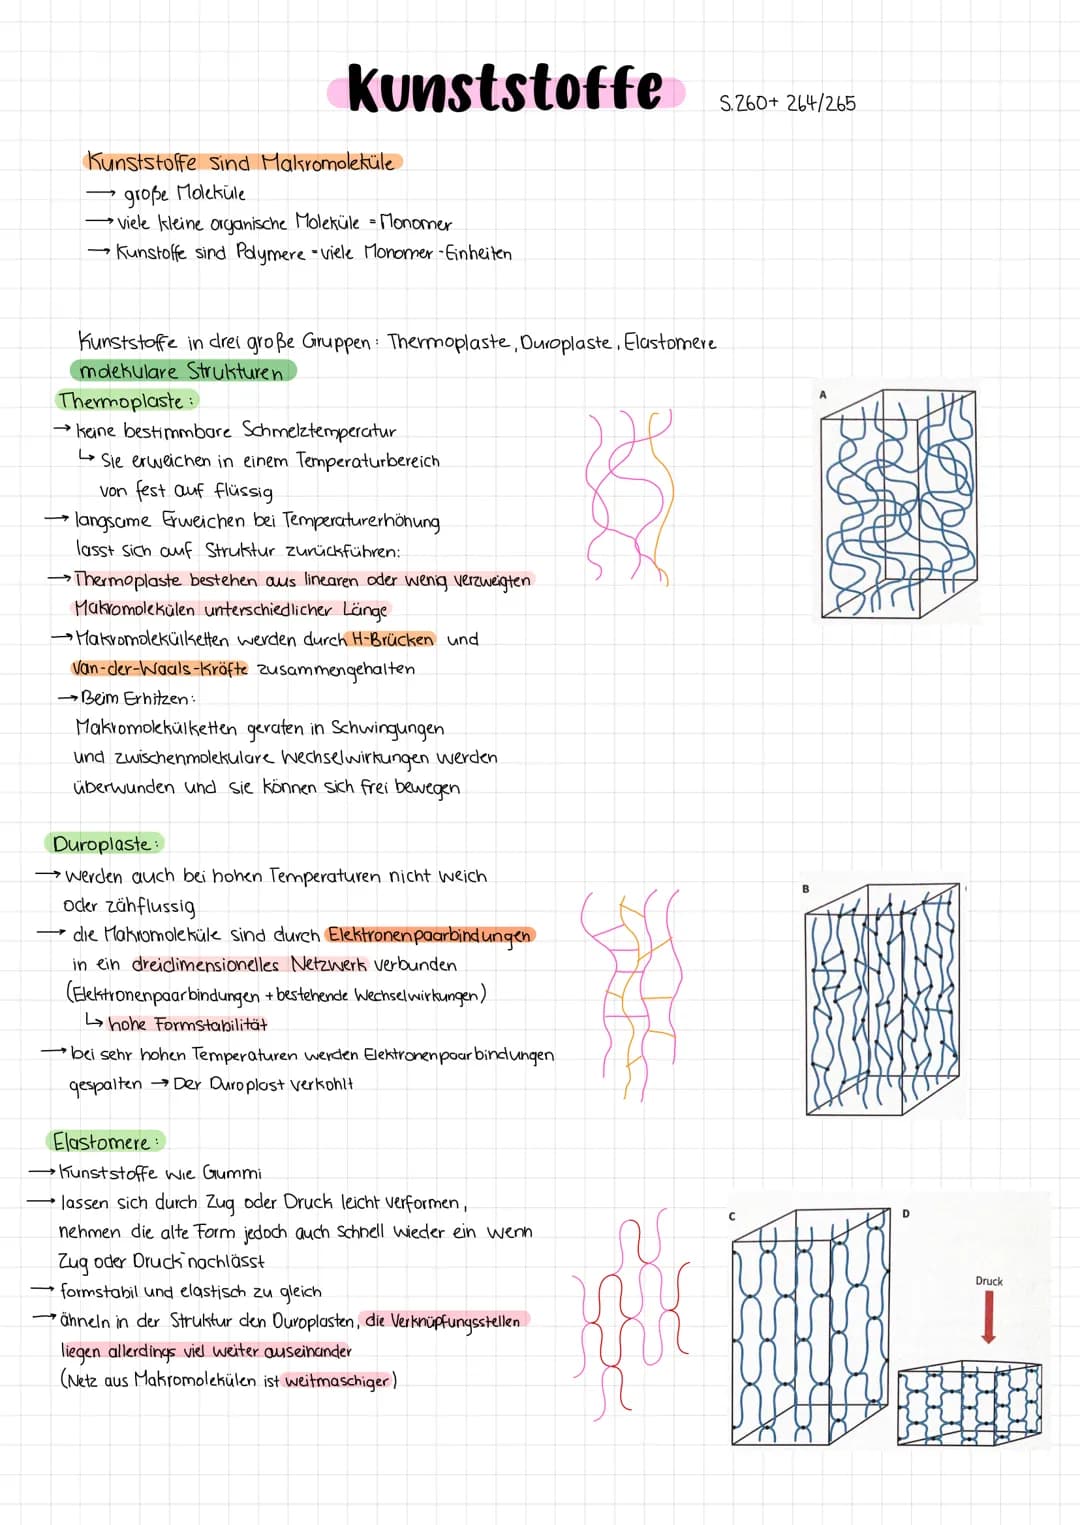 Kunststoffe S.260+ 264/265
Kunststoffe sind Makromoleküle
→ große Moleküle
→ viele kleine organische Moleküle = Monomer
→ Kunstoffe sind Polymere = viele Monomer-Einheiten
Kunststoffe in drei große Gruppen: Thermoplaste, Duroplaste, Elastomere
molekulare Strukturen
Thermoplaste:
→ keine bestimmbare Schmelztemperatur
↳ Sie erweichen in einem Temperaturbereich
von fest auf flüssig
→ langsame Erweichen bei Temperaturerhöhung
lasst sich auf Struktur zurückführen:
→ Thermoplaste bestehen aus linearen oder wenig verzweigten
Makromolekülen unterschiedlicher Länge
→ Makromolekülketten werden durch H-Brücken und
Van-der-Waals-Kräfte zusammengehalten
→ Beim Erhitzen:
Makromolekülketten geraten in Schwingungen
und zwischenmolekulare Wechselwirkungen werden
überwunden und sie können sich frei bewegen
A
Duroplaste:
→ werden auch bei hohen Temperaturen nicht weich
oder zähflussig
→ die Makromoleküle sind durch Elektronenpaarbindungen
in ein dreidimensionelles Netzwerk verbunden
(Elektronenpaarbindungen + bestehende Wechselwirkungen)
↳ hohe Formstabilität
→ bei sehr hohen Temperaturen werden Elektronenpaarbindungen
gespalten → Der Duroplast verkohlt
B
Elastomere:
→ Kunststoffe wie Gummi
→ lassen sich durch Zug oder Druck leicht verformen,
nehmen die alte Form jedoch auch schnell wieder ein wenn
Zug oder Druck nachlässt
→ formstabil und elastisch zu gleich
→ ähneln in der Struktur den Duroplasten, die Verknüpfungsstellen
liegen allerdings viel weiter auseinander
(Netz aus Makromolekülen ist weitmaschiger)
C
D
Druck